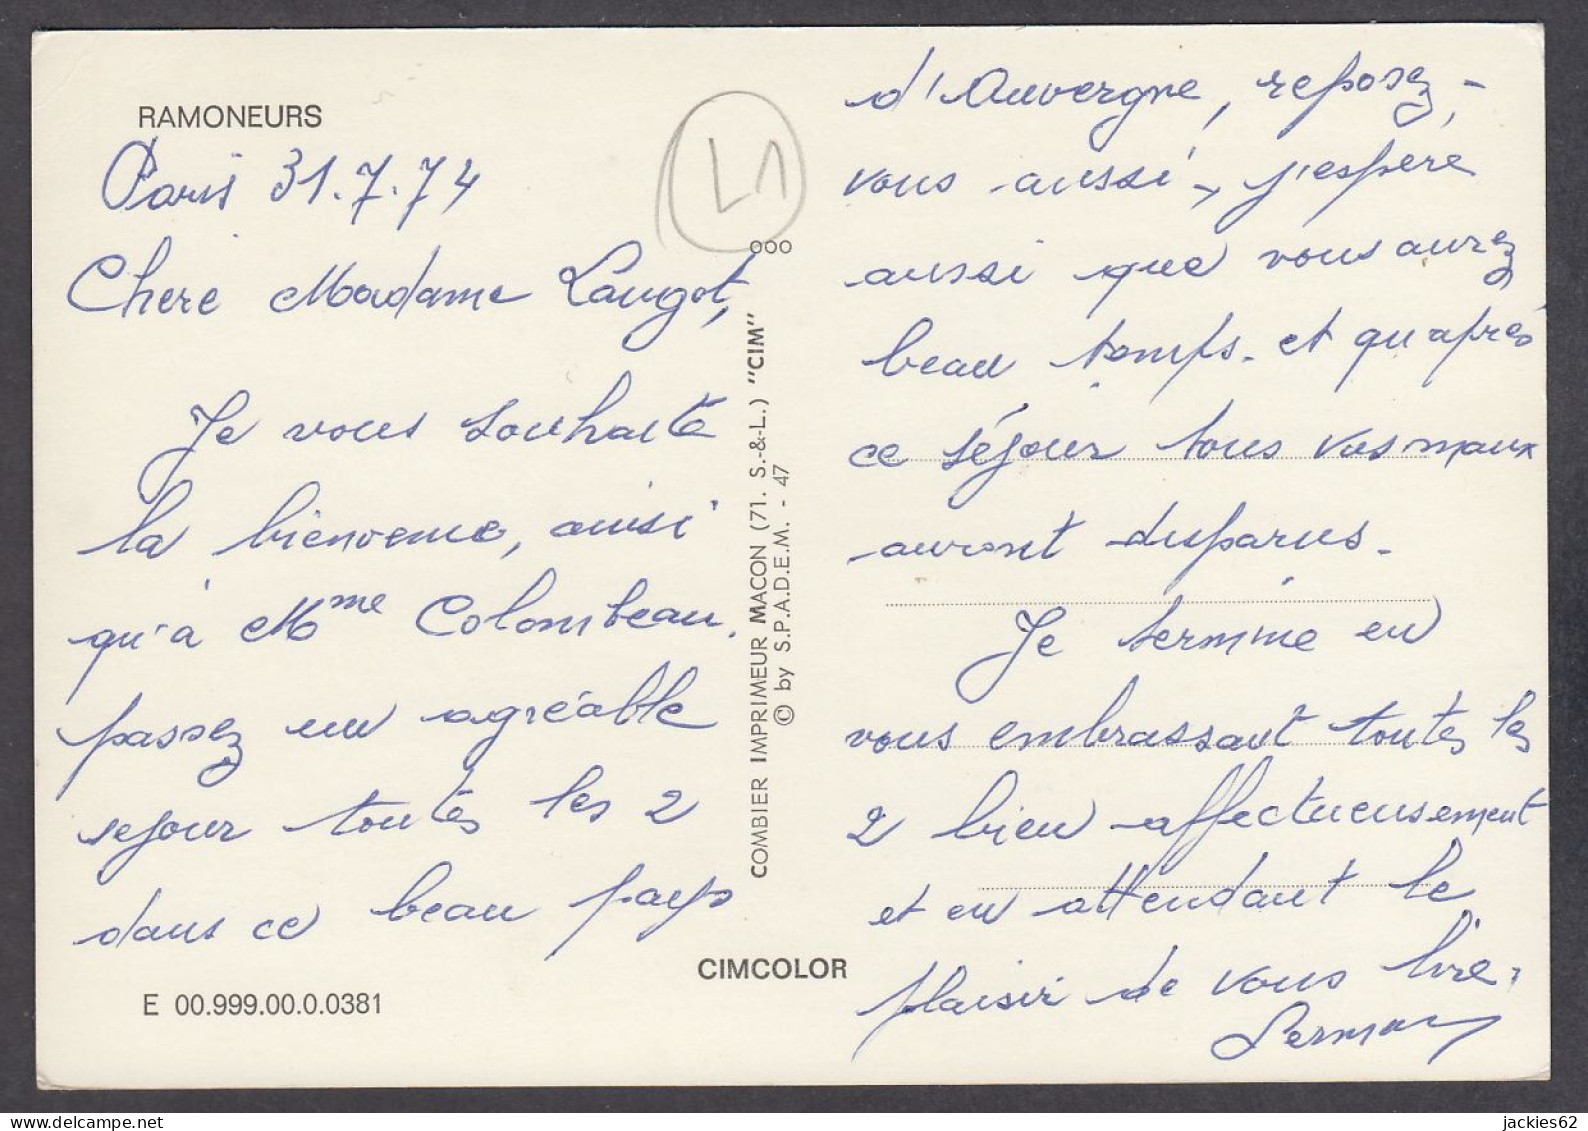 RAMONEURS
Paris 31.7.74
L1
ooo
Chere Madame Laugot,
Je vous souhaite
la bienvenue, ainsi
qu'à Mme Colombeau.
passez un agréable
sejour toutes les 2
dans ce beau pays
E 00.999.00.0.0381
COMBIER IMPRIMEUR MACON (71. S.-&-L.) "CIM"
© by S.P.A.D.E.M. - 47
CIMCOLOR
d'Auvergne, reposez-
vous aussi, j'espère
aussi que vous aurez
beau temps. et qu'après
ce séjour tous vos maux
auront disparus.
Je termine en
vous embrassant toutes les
2 bien affectueusement
et en attendant le
plaisir de vous lire.
jackies62